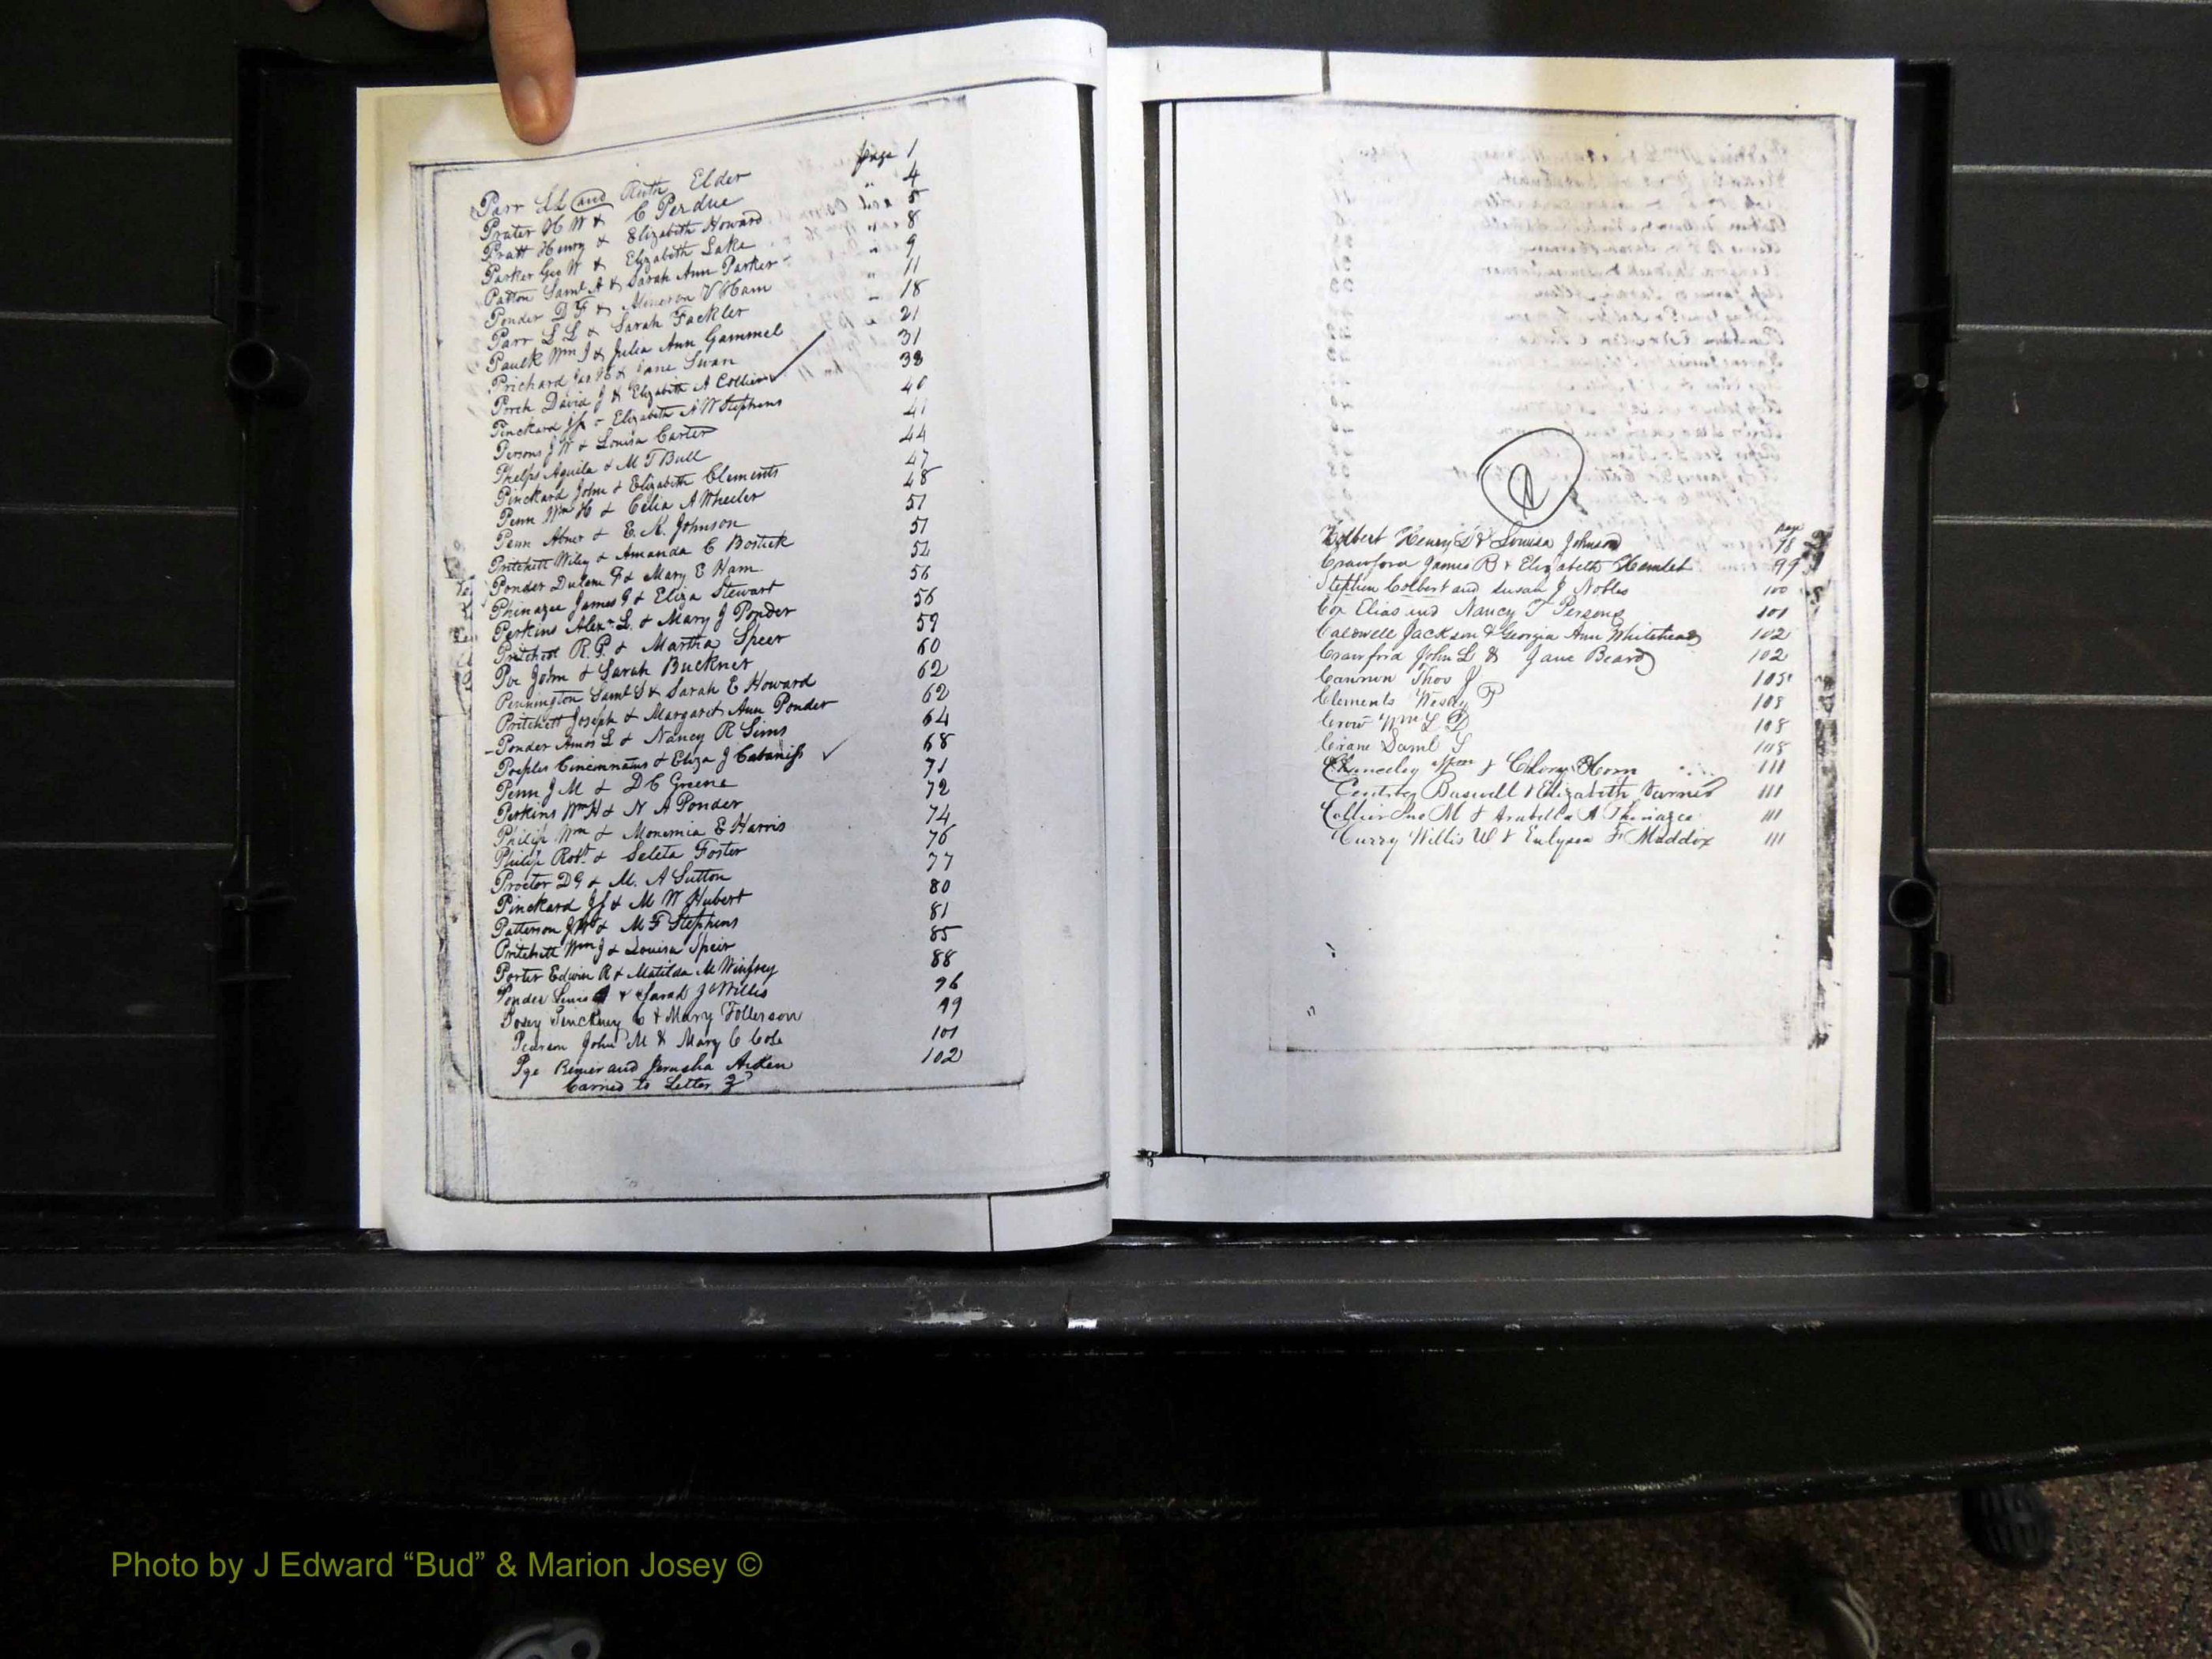 page 1
Parr LL and Ruth Elder 4
Prater H W & C Perdue " 5
Pratt Henry & Elizabeth Howard " 8
Parker Geo W & Elizabeth Lake " 9
Patton Saml A & Sarah Ann Parker " 11
Ponder D F & Minerva V Ham " 18
Parr L L & Sarah Fackler 21
Paulk Wm J & Julia Ann Gammel 31
Prichard Jas H & Jane Swan 38
Porch David J & Elizabeth A Collier 40
Pinckard & Elizabeth A W Stephens 41
Persons J W & Louisa Carter 44
Phelps Aquila & M T Bull 47
Pinckard John & Elizabeth Clements 48
Penn Wm H & Celia A Wheeler 51
Penn Abner & E. K. Johnson 51
Pritchett Wiley & Amanda C Bostick 52
Ponder F & Mary E Ham 56
Phinazee James G & Eliza Stewart 56
Perkins Alexr L. & Mary J Ponder 59
Pritchett R. P. & Martha Speer 60
Poe John & Sarah Buckner 62
Pennington Saml S & Sarah E Howard 62
Pritchett Joseph & Margaret Ann Ponder 64
Ponder Amos L & Nancy R Sims 68
Peeples Cincinnatus & Eliza J Cabaniss 71
Penn J M & D C Greene 72
Perkins Wm H & N A Ponder 74
Philip Wm & Monemia E Harris 76
Philip Robt & Seleta Foster 77
Proctor D G & M. A Sutton 80
Pinckard & M W Hubert 81
Patterson J W & M F Stephens 85
Pritchett Wm J & Louisa Speir 88
Porter Edwin R & Matilda M Winfrey 96
Ponder & Sarah J Willis 99
Posey Pinckney C & Mary Tollerson 101
Pearson John M & Mary C Cole 102
Pye and Jerusha Aiken
Carried to Letter Z
page
Colbert Henry & Louisa Johnson 98
Crawford James B & Elizabeth Hamlet 99
Stephen Colbert and Susan J Nobles 100
Cox Elias and Nancy T Persons 101
Caldwell Jackson & Georgia Ann Whitehead 102
Crawford John L & Jane Beard 102
Cannon Thos J 105
Clements Wesley P 105
Crow Wm L D 108
Crane Saml S 108
Wm & Horn 111
Buswell & Elizabeth 111
Collier Jno M & Arabella A Phinazee 111
Curry Willis W & F Maddox 111
Photo by J Edward “Bud” & Marion Josey ©